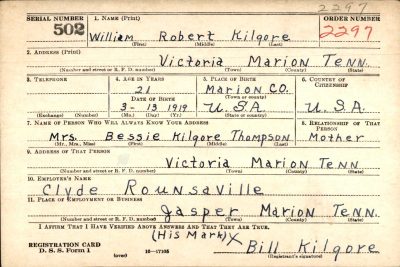 2297
SERIAL NUMBER 1. NAME (Print) ORDER NUMBER
502 William Robert Kilgore 2297
(First) (Middle) (Last)
2. ADDRESS (Print)
Victoria Marion Tenn.
(Number and street or R. F. D. number) (Town) (County) (State)
3. TELEPHONE 4. AGE IN YEARS 5. PLACE OF BIRTH 6. COUNTRY OF CITIZENSHIP
21 Marion Co.
DATE OF BIRTH (Town or county)
3-13 1919 U.S.A. U.S.A.
(Exchange) (Number) (Mo.) (Day) (Yr.) (State or country)
7. NAME OF PERSON WHO WILL ALWAYS KNOW YOUR ADDRESS 8. RELATIONSHIP OF THAT PERSON
Mrs. Bessie Kilgore Thompson Mother
(Mr., Mrs., Miss) (First) (Middle) (Last)
9. ADDRESS OF THAT PERSON
Victoria Marion Tenn
(Number and street or R. F. D. number) (Town) (County) (State)
10. EMPLOYER'S NAME
Clyde Rounsaville
11. PLACE OF EMPLOYMENT OR BUSINESS
Jasper Marion Tenn.
(Number and street or R. F. D. number) (Town) (County) (State)
I AFFIRM THAT I HAVE VERIFIED ABOVE ANSWERS AND THAT THEY ARE TRUE.
(His Mark) X
REGISTRATION CARD Bill Kilgore
D. S. S. Form 1 (over) 16—17105 (Registrant's signature)